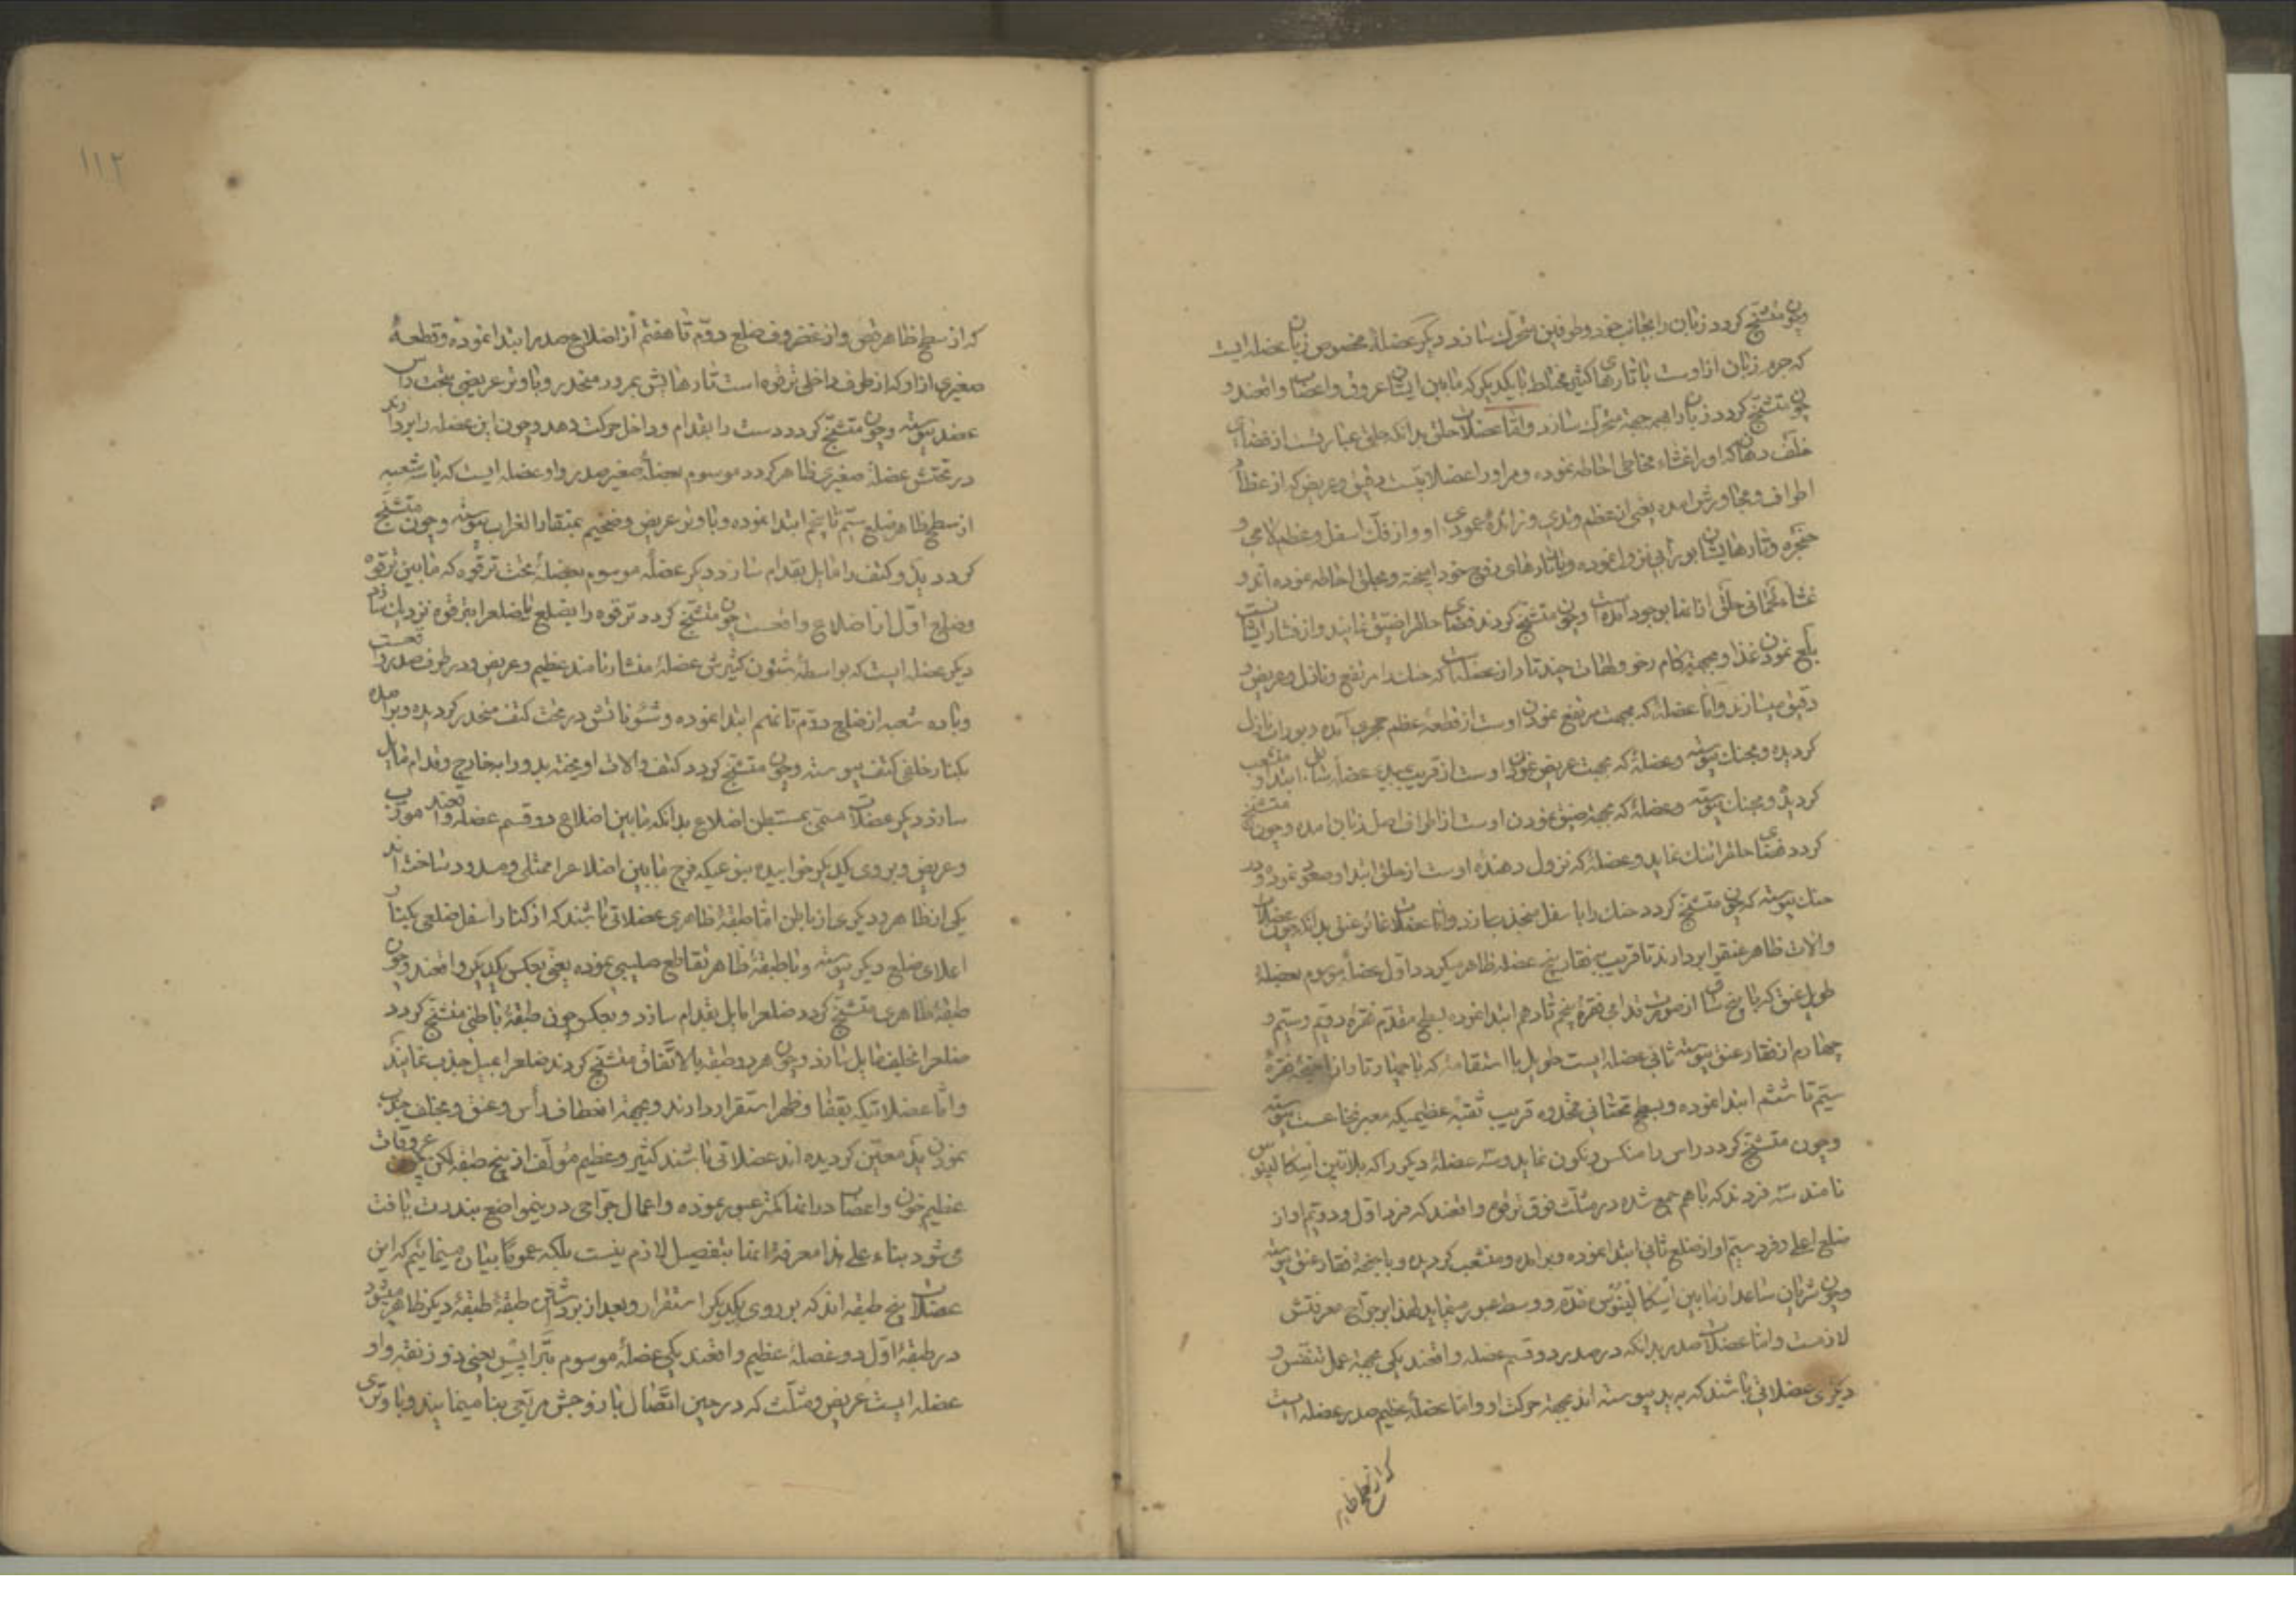 وچون متشنج کردد زبان را بجانب خود وطرفین متحرک سازد دیگر عضلهٔ مخصوص زبان عضله ایست
که جرم زبان ازاوست با تارهای کثیر مختلط بایکدیکر که مابین ایشان عروق واعصاب واقعند و
چون متشنج کردد زبان را بهر جهة متحرک سازد واما عضلات حلق بدانکه حلق عبارتست از فضای
خلف دهان که اورا غشاء مخاطی احاطه نموده ومراورا عضلاتیست دقیق وعریض که از عظام
اطراف ومجاورش امده یعنی از عظم وتدی وزائدهٔ عمودی او واز فک اسفل وعظم لامی و
حنجره وتارهایشان بوراب نزول نموده وباتارهای زوج خود امیخته وبحلق احاطه نموده اند و
غشاء لحمانی حلق از انها بوجود امده است وچون متشنج کردند فضای حلقرا ضیق نمایند واز فشار ایشانست
بلع نمودن غذا وبجهة کام رخو ولهات چند تا دارند عضلات که حنک را مرتفع ونازل وعریض و
دقیق میسازند واما عضلهٔ که بجهت مرتفع نمودن اوست از قطعهٔ عظم حجری آمده وبوراب نازل
کردیده وبحنک پیوسته وعضلهٔ که بجهت عریض نمودن اوست از قریب بدء عضلهٔ شامل ابتدا و متشعب
کردیده وبحنک پیوسته وعضلهٔ که بجهة ضیق نمودن اوست از اطراف اصل زبان امده وچون متشنج
کردد فضای حلقرا تنک نماید وعضلهٔ که نزول دهندهٔ اوست از حلق ابتدا وصعود نموده ودر
حنک پیوسته که چون متشنج کردد حنک را باسفل منجذب سازد واما عضلات غائر عنق بدانکه چون عضلات
والات ظاهر عنقرا بردارند تا قریب بفقار پنج عضله ظاهر میکردد اول عضلهٔ موسوم بعضلهٔ
طویل عنق که با پنج شاق از صورت تدامی فقرهٔ پنجم تا دهم ابتدا نموده بسطح مقدم فقرهٔ دویم وسیم و
چهارم از فقار عنق پیوسته ثانی عضله ایست طویل با استقامة که با چهار تار از اجنحهٔ فقرهٔ
سیم تا ششم ابتدا نموده وبسطح تحتانی محدوه قریب ثقبهٔ عظیمیکه معبر نخاعست پیوسته
وچون متشنج کردد راس را منکس ونکون نماید وسه عضلهٔ دیکر را که بلاتین اسکالینوس
نامند سه فردند که باهم جمع شده در مثلث فوق ترقوه واقعند که فرد اول ودویم او از
ضلع اعلی وفرد سیم او از ضلع ثانی ابتدا نموده وبرامده ومتشعب کردیده وباجنحهٔ فقار عنق پیوسته
وچون شریان ساعد از مابین اسکالینوس قدام ووسط عبور مینماید لهذا بر جراح معرفتش
لازمست واما عضلات صدر بدانکه در صدر دو قسم عضله واقعند یکی بجهة عمل تنفس و
دیکری عضلاتی باشند که به ید پیوسته اند بجهة حرکت او واما عضلهٔ عظیم صدر عضله ایست
که از سطح ظاهر
۱۱۲
که از سطح ظاهر قص واز غضروف ضلع دوم تا هفتم از اضلاع صدر ابتدا نموده وقطعهٔ
صغیری از او که از طرف داخلی ترقوه است تارهایش بمرور منحدر وباوتر عریضی بتحت راس
عضد پیوسته وچون متشنج کردد دست را بقدام وداخل حرکت دهد وچون این عضله را بردارند
در تحتش عضلهٔ صغیری ظاهر کردد موسوم بعضلهٔ صغیر صدر واو عضله ایست که با سه شعبه
از سطح ظاهر ضلع سیم تا پنجم ابتدا نموده وباوتر عریض وضخیم بمنقار الغراب پیوسته وچون متشنج
کردد ید وکتف را مایل بقدام سازد دیکر عضلهٔ موسوم بعضلهٔ تحت ترقوه که مابین ترقوه
وضلع اول از اضلاع واقعست چون متشنج کردد ترقوه را بضلع یا ضلعرا بترقوه نزدیک سازد
دیکر عضله ایست که بواسطهٔ شئون کثیرش عضلهٔ منشار نامند عظیم وعریض ودر طرف صدر واقعست
وباده شعبه از ضلع دوم تا نهم ابتدا نموده وشئوناتش در تحت کتف منحدر کردیده وبرامده
بکنار خلفی کتف پیوسته وچون متشنج کردد کتف والات اویخته بدو را بخارج وقدام مایل
سازد دیکر عضلات مسمی بمستبطن اضلاع بدانکه مابین اضلاع دو قسم عضله واقعند مورب
وعریض وبروی یکدیکر خوابیده بنوعیکه فرج مابین اضلاعرا ممتلی ومسدود ساخته اند
یکی از ظاهر ودیکری از باطن اما طبقهٔ ظاهری عضلاتی باشند که از کنار اسفل ضلعی بکنار
اعلای ضلع دیکر پیوسته وباطبقهٔ ظاهر تقاطع صلیبی نموده یعنی بعکس یکدیکر واقعند وچون
طبقهٔ ظاهری متشنج کردد ضلعرا مایل بقدام سازد وبعکس چون طبقهٔ باطنی متشنج کردد
ضلعرا بخلف مایل سازد وچون هردو طبقه بالاتفاق متشنج کردند ضلعرا بمیل جذب نمایند
واما عضلاتیکه بقفا وظهر استقرار دارند وبجهة انعطاف رأس وعنق وبخلف جذب
نمودن ید معین کردیده اند عضلاتی باشند کثیر وعظیم مؤلف از پنج طبقه لکن چون عروقات
عظیم خون واعصاب در انها کمتر عبور نموده واعمال جراحی در ینمواضع بندرت یافت
می شود بناء علی هذا معرفة انها بتفصیل لازم نیست بلکه عموما بیان مینمائیم که این
عضلات پنج طبقه اند که بر روی یکدیکر استقرار وبعد از برداشتن طبقهٔ طبقهٔ دیکر ظاهر میشود
در طبقهٔ اول دو عضلهٔ عظیم واقعند یکی عضلهٔ موسوم بتراپیس یعنی ذوزنقه واو
عضله ایست عریض ومثلث که در حین اتصال با زوجش مربعی بنا مینمایند وباوتری